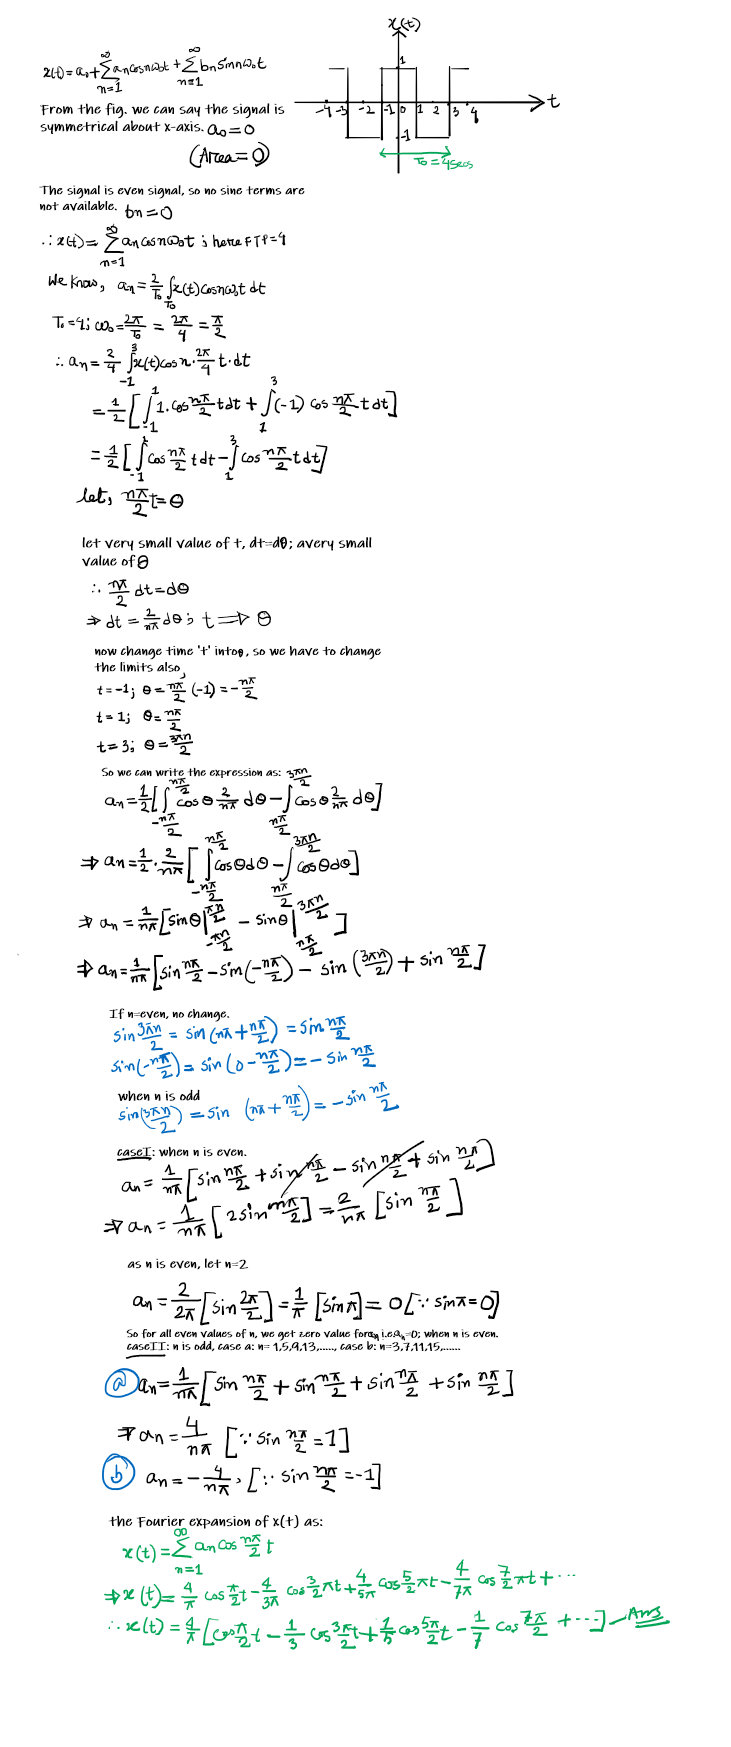 x(t)
x(t) = a₀ + ∞Σn=1 aₙ cos nω₀t + ∞Σn=1 bₙ sin nω₀t
1
-4 -3 -2 -1 0 1 2 3 4 → t
-1
T₀ = 4 secs
From the fig. we can say the signal is
symmetrical about x-axis. a₀ = 0
(Area = 0)
The signal is even signal, so no sine terms are
not available. bn = 0
∴ x(t) = ∞Σn=1 an cos nω₀t ; here FTP = 4
We know, an = 2/T₀ ∫T₀ x(t) cos nω₀t dt
T₀ = 4; ω₀ = 2π/T₀ = 2π/4 = π/2
∴ an = 2/4 ∫₋₁³ x(t) cos n·2π/4 t·dt
= 1/2 [∫₋₁¹ 1. cos nπ/2 t dt + ∫₁³ (-1) cos nπ/2 t dt]
= 1/2 [∫₋₁¹ cos nπ/2 t dt - ∫₁³ cos nπ/2 t dt]
let, nπ/2 t = θ
let very small value of t, dt=dθ; avery small
value of θ
∴ nπ/2 dt = dθ
⇒ dt = 2/nπ dθ ; t ⇒ θ
now change time 't' into θ, so we have to change
the limits also,
t = -1; θ = nπ/2 (-1) = -nπ/2
t = 1; θ = nπ/2
t = 3; θ = 3πn/2
So we can write the expression as:
an = 1/2 [∫_{-nπ/2}^{nπ/2} cos θ 2/nπ dθ - ∫_{nπ/2}^{3πn/2} cos θ 2/nπ dθ]
⇒ an = 1/2 · 2/nπ [∫_{-nπ/2}^{nπ/2} cos θ dθ - ∫_{nπ/2}^{3πn/2} cos θ dθ]
⇒ an = 1/nπ [sin θ|_{-πn/2}^{πn/2} - sin θ|_{nπ/2}^{3πn/2}]
⇒ an = 1/nπ [sin nπ/2 - sin(-nπ/2) - sin (3πn/2) + sin nπ/2]
If n=even, no change.
sin 3πn/2 = sin (nπ + nπ/2) = sin nπ/2
sin(-nπ/2) = sin (0 - nπ/2) = - sin nπ/2
when n is odd
sin(3πn/2) = sin (nπ + nπ/2) = - sin nπ/2
caseI: when n is even.
an = 1/nπ [sin nπ/2 + sin nπ/2 - sin nπ/2 + sin nπ/2]
⇒ an = 1/nπ [2 sin nπ/2] = 2/nπ [sin nπ/2]
as n is even, let n=2
an = 2/2π [sin 2π/2] = 1/π [sin π] = 0 [∵ sin π = 0]
So for all even values of n, we get zero value for an i.e. an=0; when n is even.
caseII: n is odd, case a: n= 1,5,9,13,......, case b: n=3,7,11,15,......
ⓐ an = 1/nπ [sin nπ/2 + sin nπ/2 + sin nπ/2 + sin nπ/2]
⇒ an = 4/nπ [∵ sin nπ/2 = 1]
ⓑ an = - 4/nπ, [∵ sin nπ/2 = -1]
the Fourier expansion of x(t) as:
x(t) = ∞Σn=1 an cos nπ/2 t
⇒ x(t) = 4/π cos π/2 t - 4/3π cos 3/2 πt + 4/5π cos 5/2 πt - 4/7π cos 7/2 πt + ...
∴ x(t) = 4/π [cos π/2 t - 1/3 cos 3π/2 t + 1/5 cos 5π/2 t - 1/7 cos 7π/2 + ---] - Ans